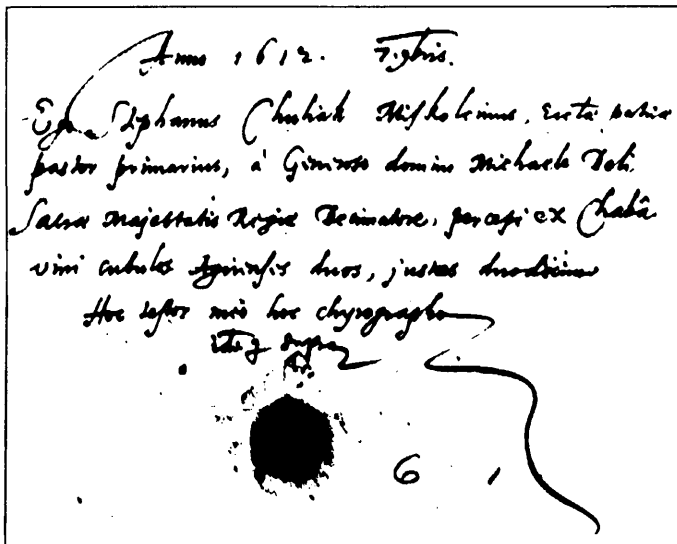 Anno 1612. 7.gbris.
Ego Stephanus Chuliak Miskolcinus, Ecclae patriae
pastor primarius, à Generoso domino Michaele Doti
Sacrae Majestatis Regiae Decimatore, percepi ex Chabâ
vini cubulos Agriensis duos, justas duodecim
Hoc testor meo hoc chyrographo
supra
6 1